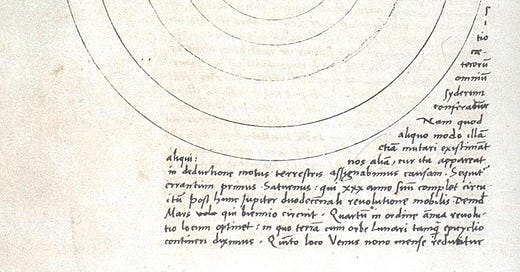 S
i
tio
cæ
terorū
omniū
syderum
conferatur
Nam quod
aliquo modo illā
etiā mutari existimāt
aliqui: nos aliā, cur ita appareat
in deductione motus terrestris assignabimus causam. Sequit
errantium primus Saturnus: qui xxx anno suū complet circu
itū. Post hunc Jupiter duodecennali revolutione mobilis. Deinde
Mars qui biennio circuit. Quartū in ordine annua revolu
tio locum optinet: in quo terrā cum orbe lunari tanq̄ epicyclio
contineri diximus. Quīto loco Venus nono mense reducitur